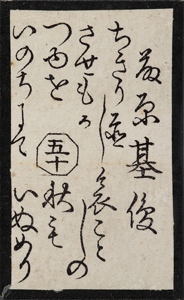 藤原基俊
ちきり置し
させもか
つゆを
いのちにて
五十
哀こと
しの
秋も
いぬめり